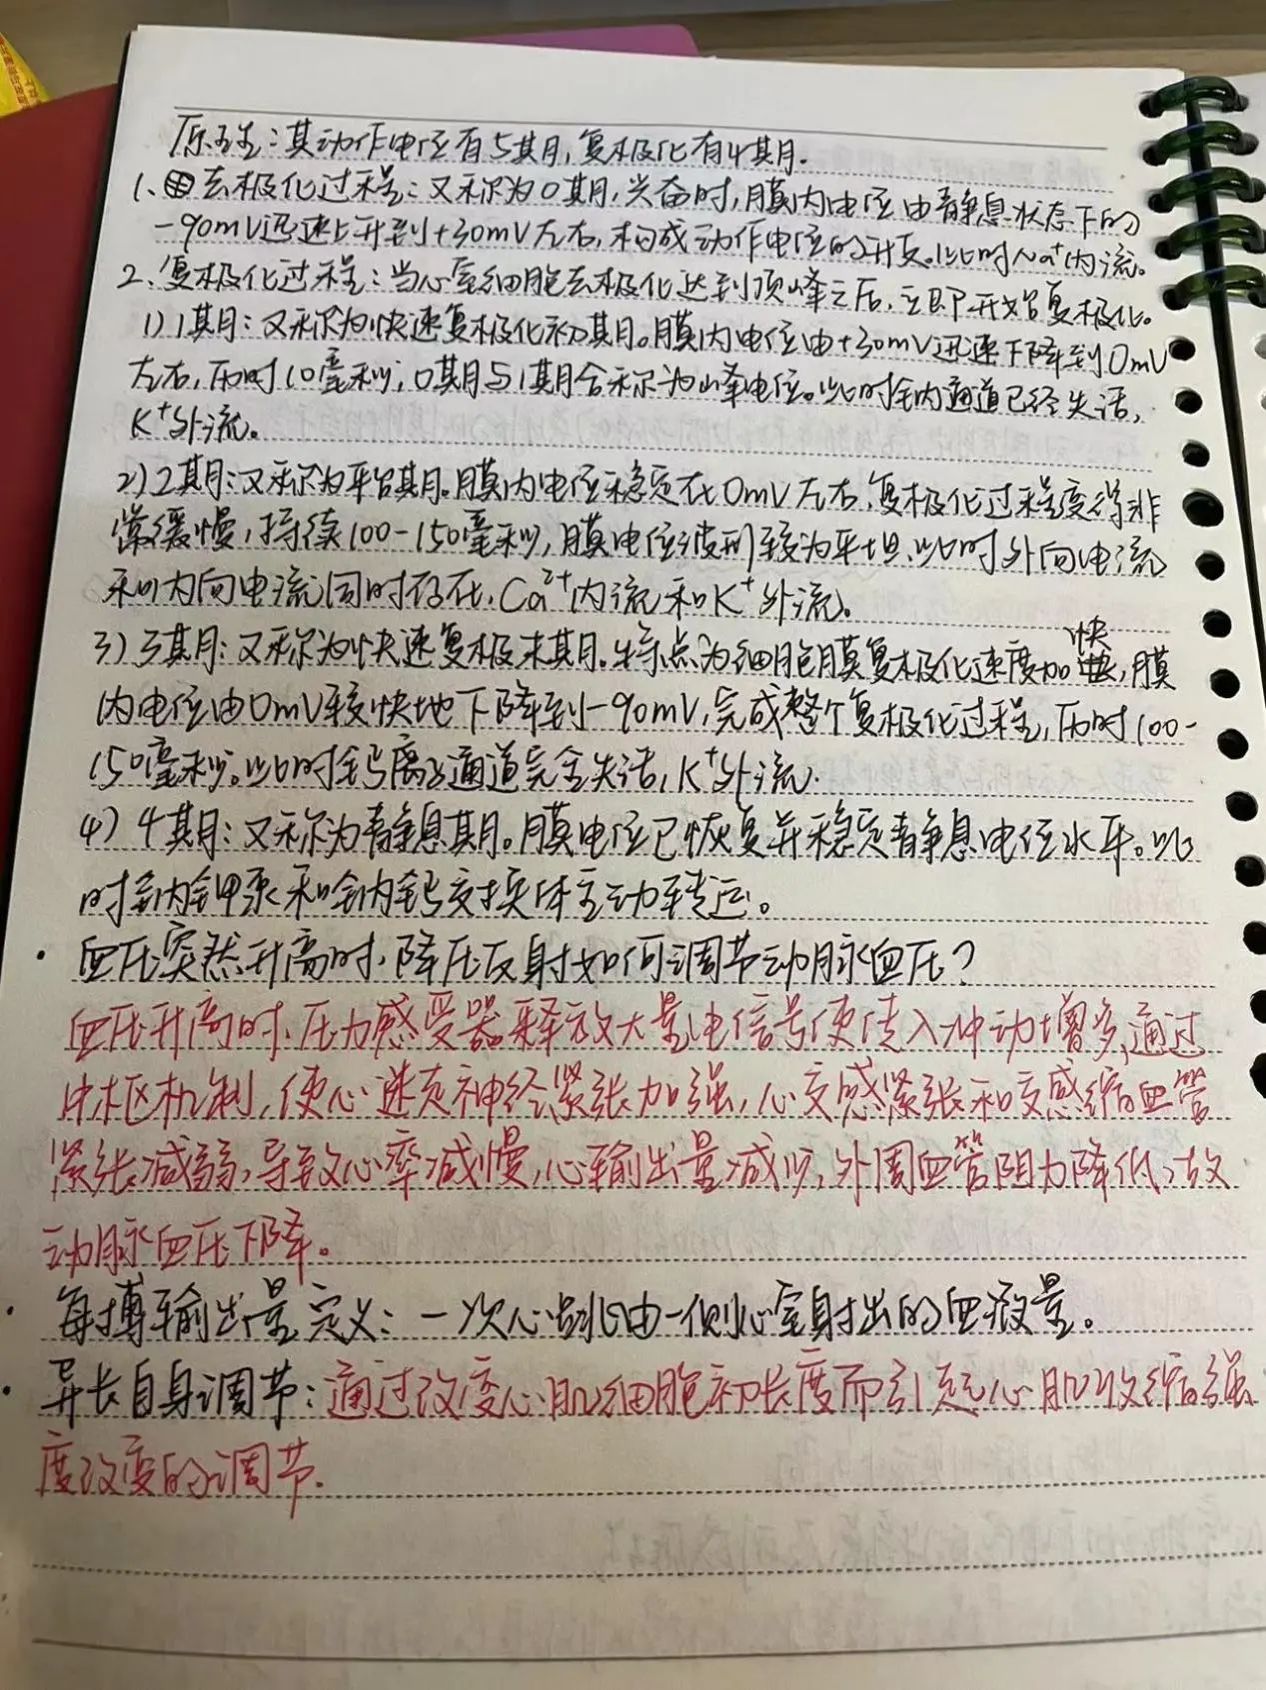 原理：其动作电位有5期，复极化有4期.
1、去极化过程：又称为0期，兴奋时，膜内电位由静息状态下的
-90mV迅速上升到+30mV左右，构成动作电位的升支。此时Na⁺内流。
2、复极化过程：当心室细胞去极化达到顶峰之后，立即开始复极化。
1) 1期：又称为快速复极化初期。膜内电位由+30mV迅速下降到0mV
左右，历时10毫秒，0期与1期合称为峰电位。此时钠通道已经失活，
K⁺外流。
2) 2期：又称为平台期。膜内电位稳定在0mV左右，复极化过程变得非
常缓慢，持续100-150毫秒，膜电位波形较为平坦，此时外向电流
和内向电流同时存在，Ca²⁺内流和K⁺外流。
3) 3期：又称为快速复极末期。特点为细胞膜复极化速度加快，膜
内电位由0mV较快地下降到-90mV，完成整个复极化过程，历时100-
150毫秒。此时钙离子通道完全失活，K⁺外流.
4) 4期：又称为静息期。膜电位已恢复并稳定静息电位水平。此
时钠钾泵和钠钙交换体主动转运。
· 血压突然升高时，降压反射如何调节动脉血压？
血压升高时，压力感受器释放大量电信号使传入冲动增多，通过
中枢机制，使心迷走神经紧张加强，心交感紧张和交感缩血管
紧张减弱，导致心率减慢，心输出量减少，外周血管阻力降低，故
动脉血压下降。
· 每搏输出量定义：一次心跳由一侧心室射出的血液量。
· 异长自身调节：通过改变心肌细胞初长度而引起心肌收缩强
度改变的调节.